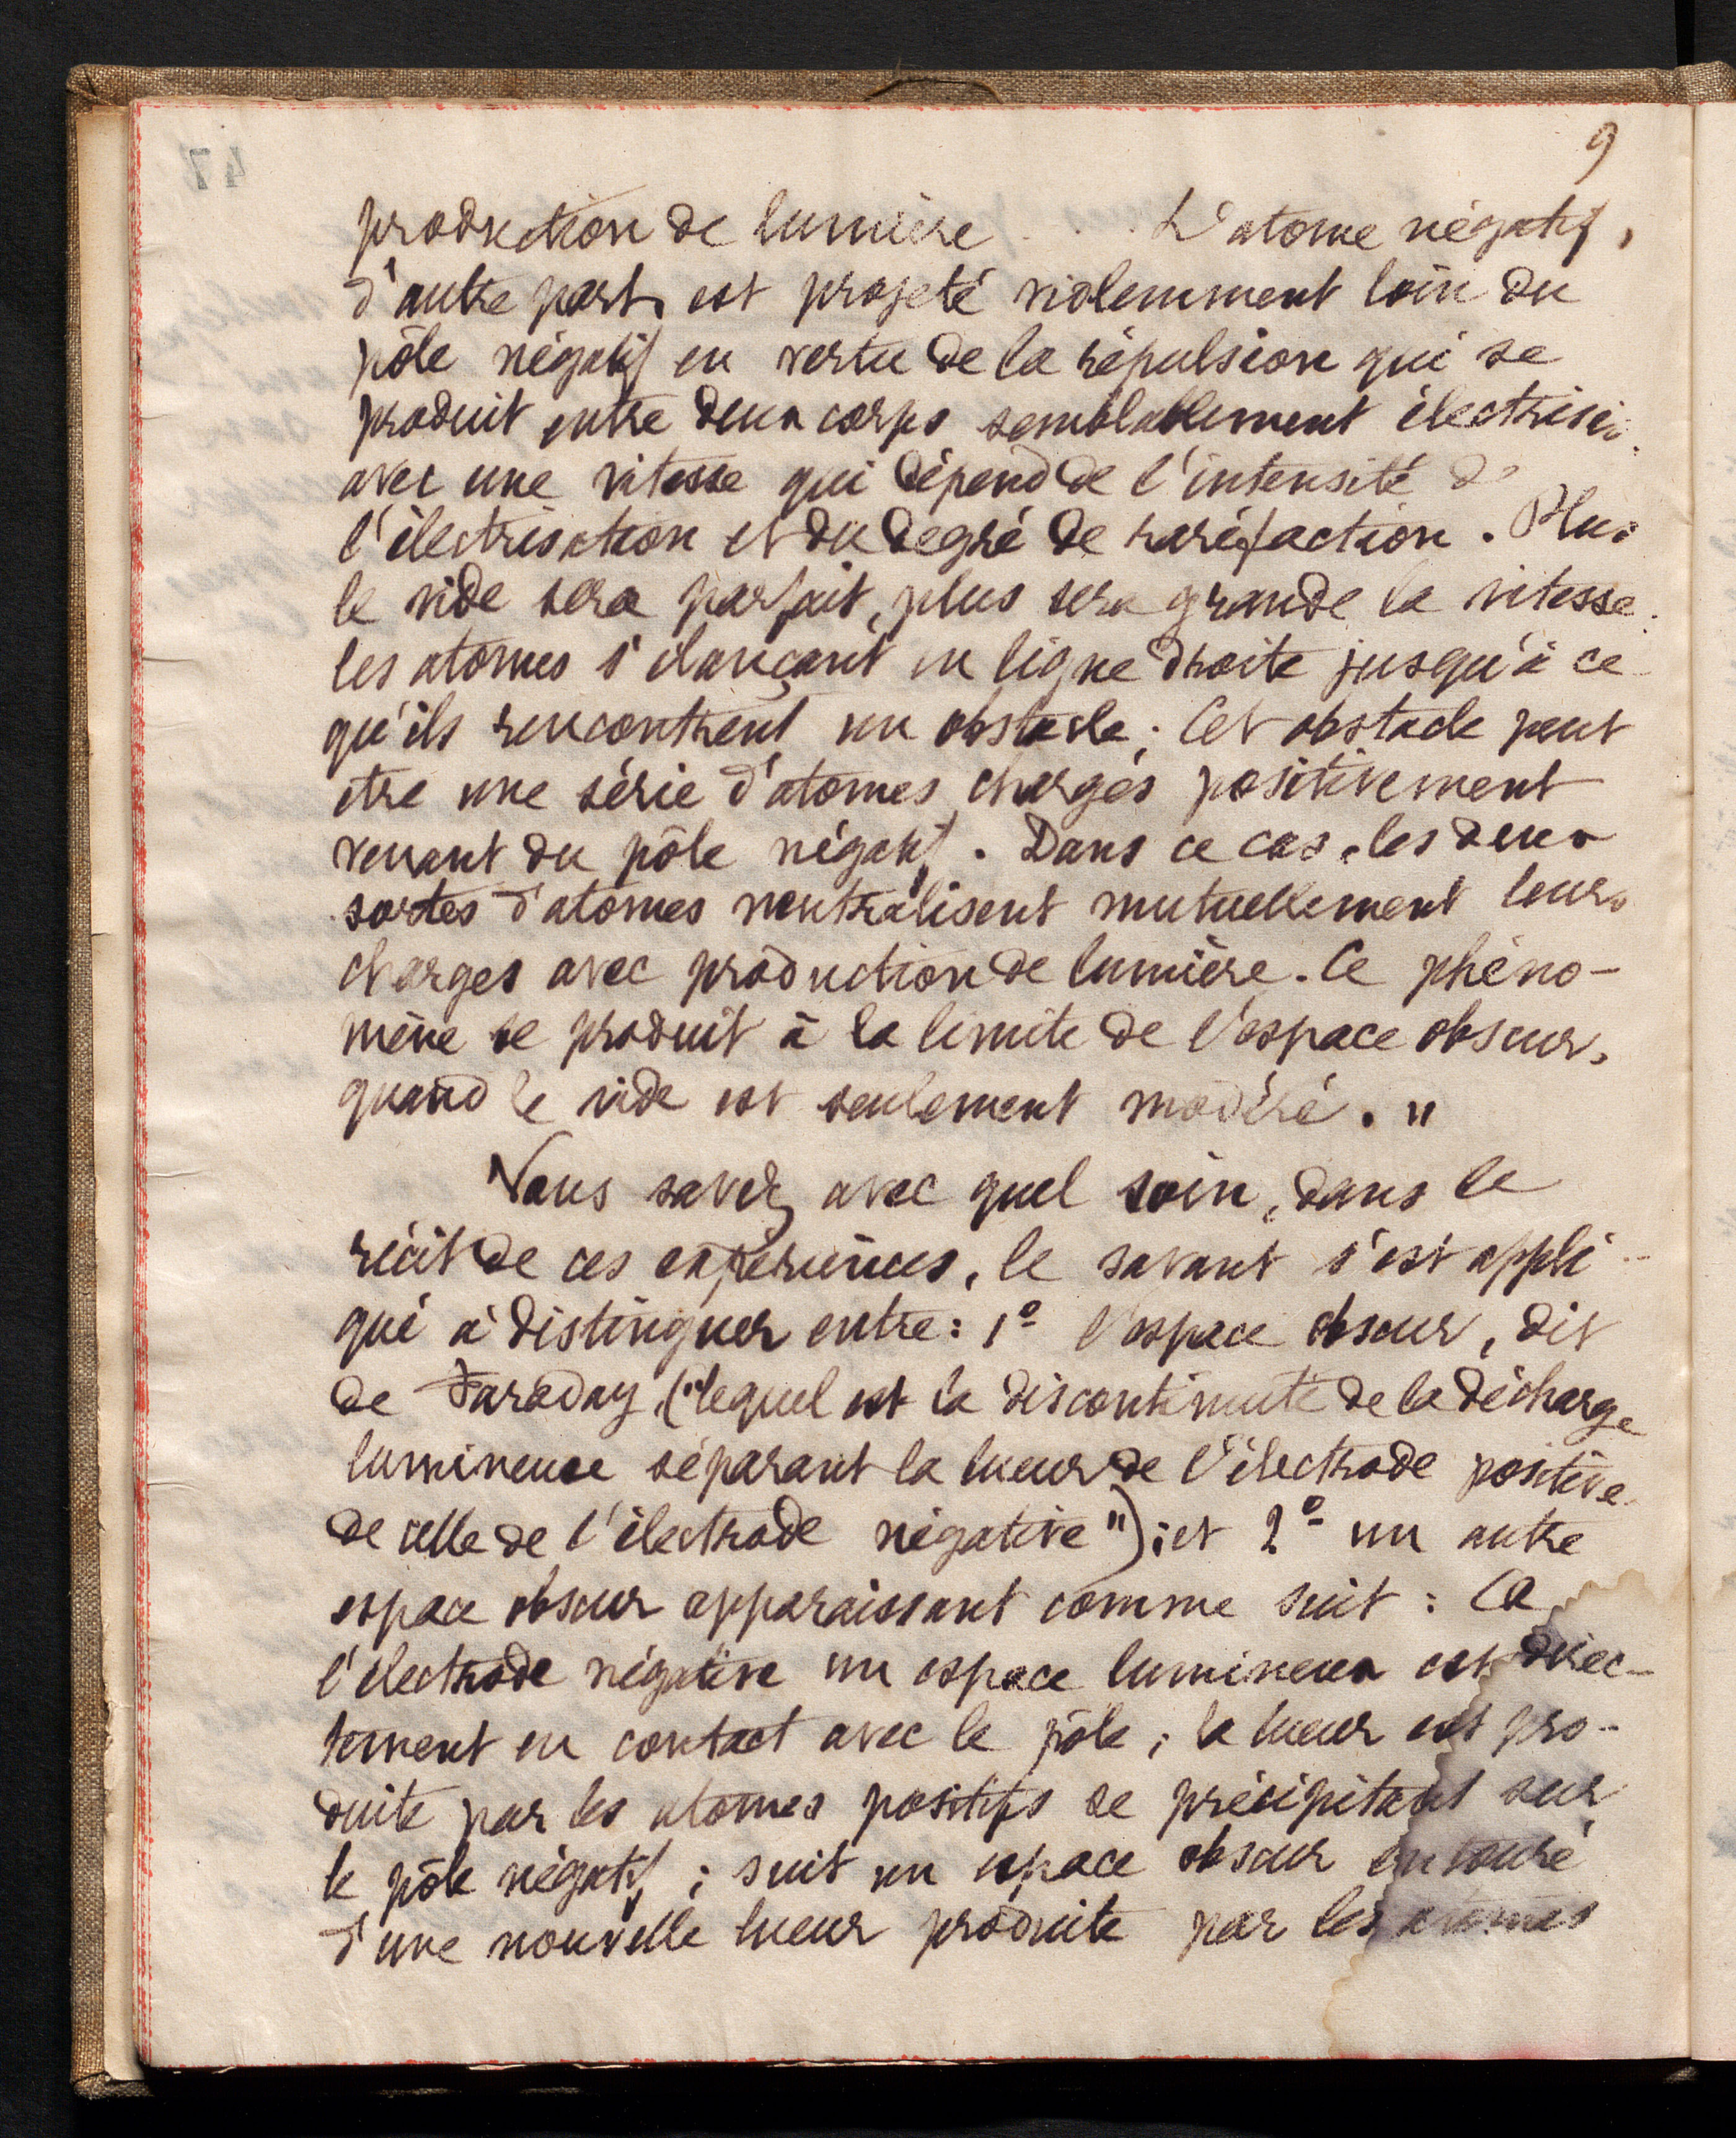 9
47
production de lumière . . . L'atome négatif,
d'autre part, est projeté violemment loin du
pôle négatif en vertu de la répulsion qui se
produit entre deux corps semblablement électrisés
avec une vitesse qui dépend de l'intensité de
l'électrisation et du degré de raréfaction. Plus
le vide sera parfait, plus sera grande la vitesse
les atomes s'élançant en ligne droite jusqu'à ce
qu'ils rencontrent un obstacle. Cet obstacle peut
être une série d'atomes chargés positivement
venant du pôle négatif. Dans ce cas, les deux
sortes d'atomes neutralisent mutuellement leurs
charges avec production de lumière. Ce phéno-
mène se produit à la limite de l'espace obscur,
quand le vide est seulement modéré. "
Vous savez avec quel soin, dans le
récit de ces expériences, le savant s'est appli-
qué à distinguer entre : 1º l'espace obscur, dit
de Faraday, ("lequel est la discontinuité de la décharge
lumineuse séparant la lueur de l'électrode positive
de celle de l'électrode négative") ; et 2º un autre
espace obscur apparaissant comme suit : Ca
l'électrode négative un espace lumineux est direc-
tement en contact avec le pôle ; la lueur est pro-
duite par les atomes positifs se précipitant sur
le pôle négatif ; suit un espace obscur entouré
d'une nouvelle lueur produite par les atomes